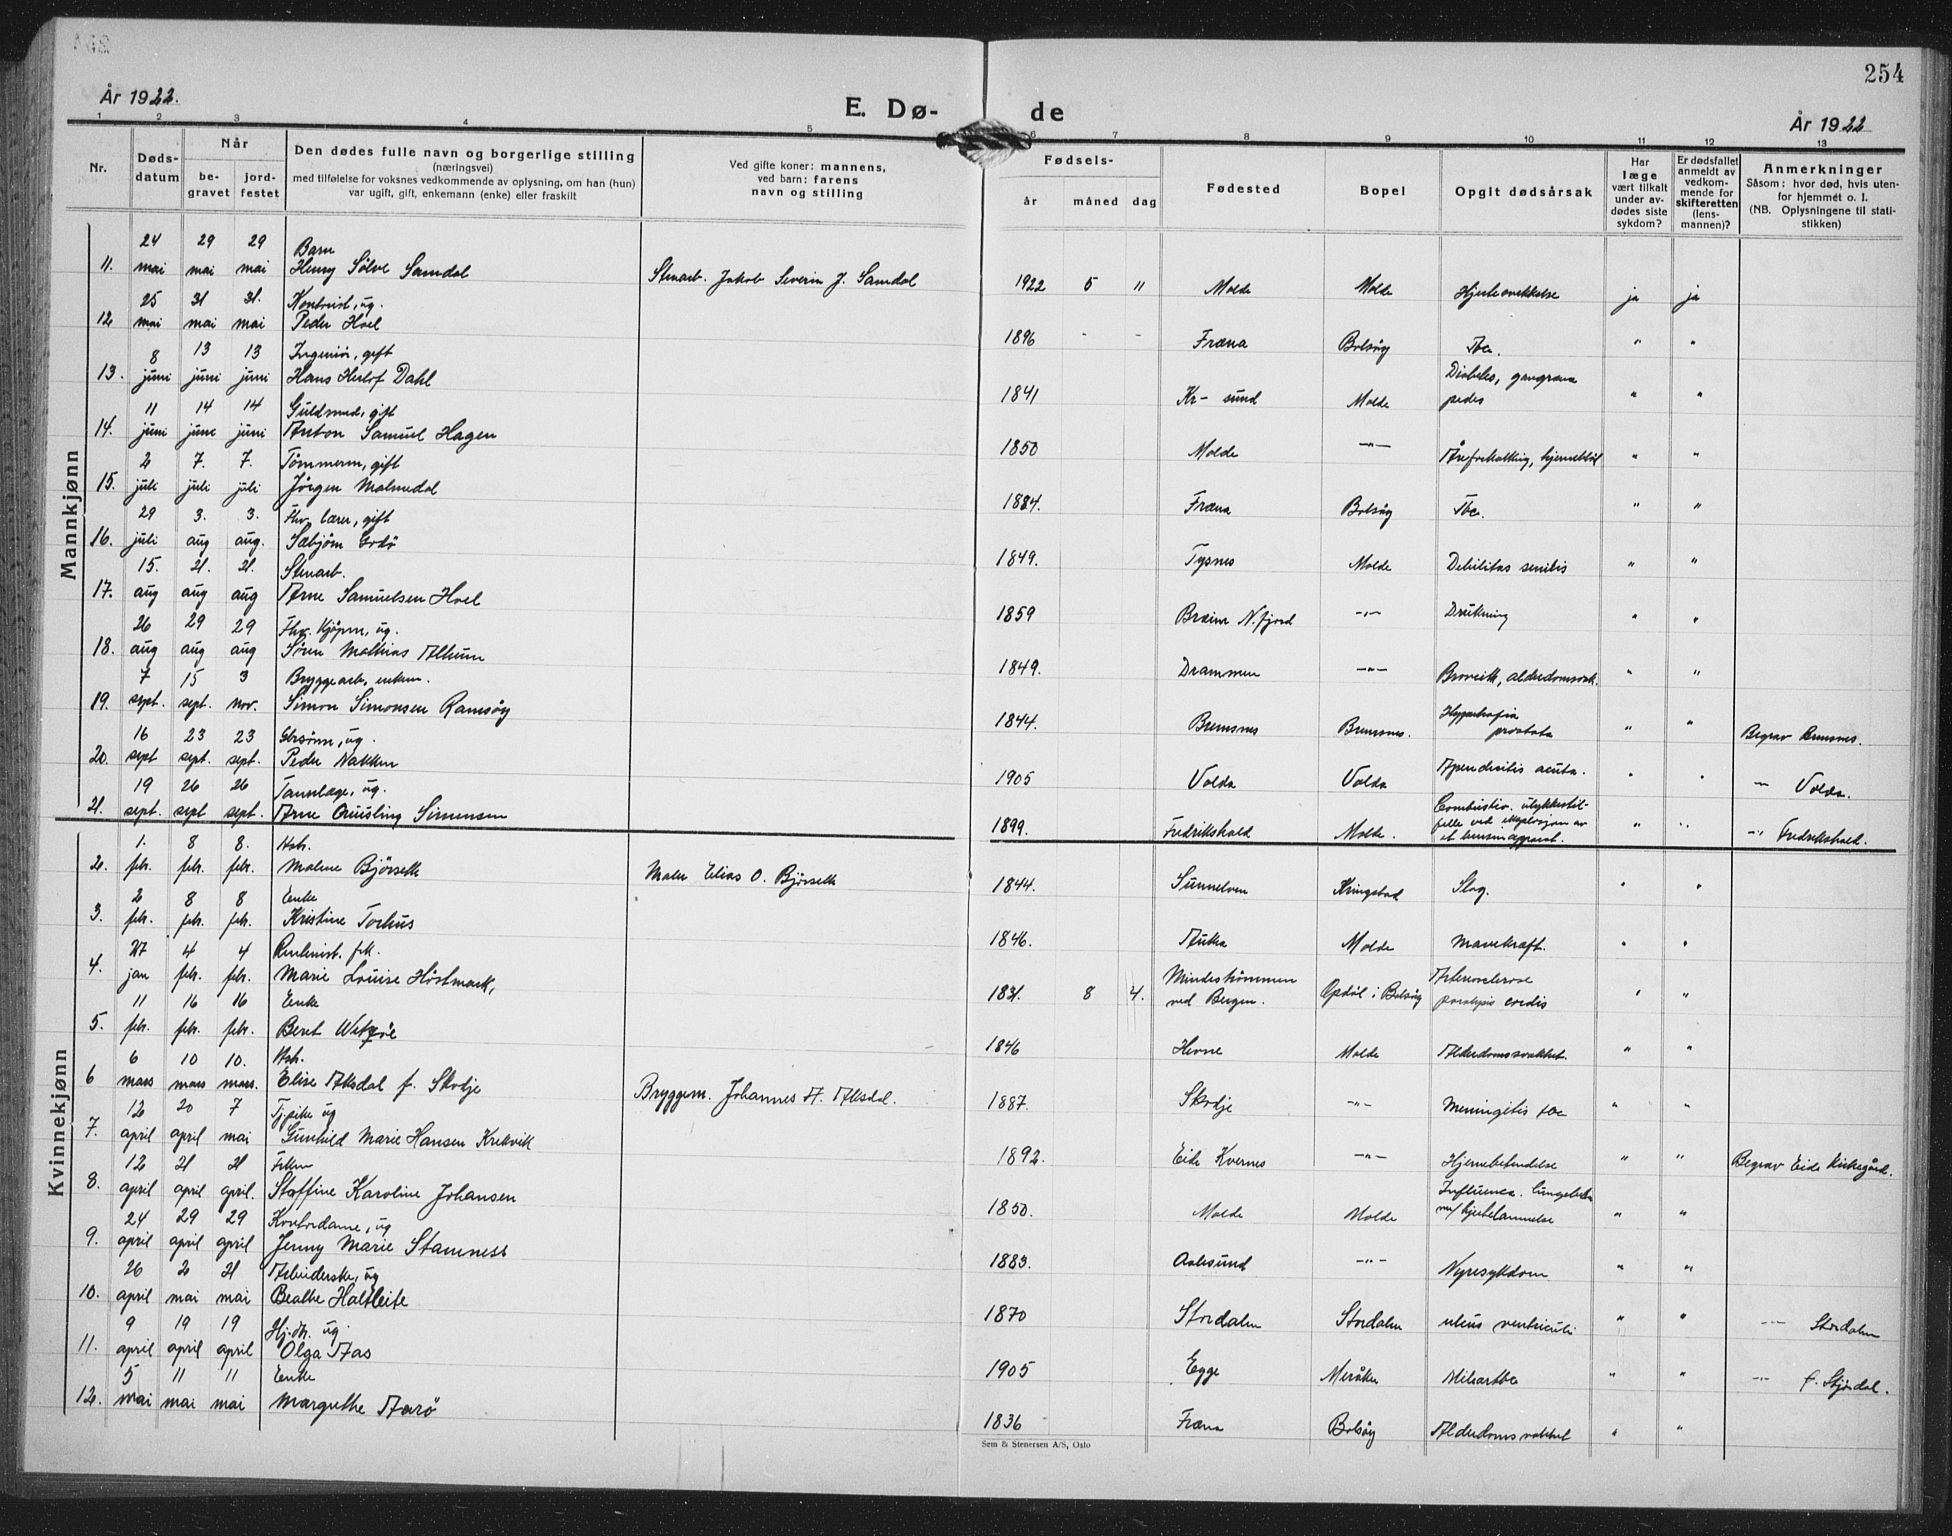 254
År 1922.
E. Dø- de
År 1922
1 2 3 4 5 6 7 8 9 10 11 12 13
Nr.
Døds-
datum
Når
be-
gravet
jord-
festet
Den dødes fulle navn og borgerlige stilling
(næringsvei)
med tilføielse for voksnes vedkommende av oplysning, om han (hun)
var ugift, gift, enkemann (enke) eller fraskilt
Ved gifte koner: mannens,
ved barn: farens
navn og stilling
Fødsels-
år måned dag
Fødested
Bopel
Opgit dødsårsak
Har
læge
vært tilkalt
under av-
dødes siste
sykdom?
Er dødsfallet
anmeldt av
vedkom-
mende for
skifteretten
(lens-
mannen)?
Anmerkninger
Såsom: hvor død, hvis uten-
for hjemmet o. l.
(NB. Oplysningene til stati-
stikken)
Mannkjønn
24 29 29 Barn
11. mai mai mai Henry Sölve Samdal Stenarb. Jakob Severin J. Samdal 1922 5 " Molde Molde Hjerte ja ja
25 31 31. Kontorist, ug.
12 mai mai mai Peder Hoel 1896 - - Fræna Bolsöy Tbc. " "
8 13 13 Ingeniör, gift
13. juni juni juni Hans Herlof Dahl 1841 Kr- sund Molde Diabetes, gangræna
pedes " "
11 14 14 Guldsmed, gift
14. juni june juni Anton Samuel Hagen 1850 Molde -"- " "
2 7. 7. Tömmerm, gift
15. juli juli juli Jörgen Malmedal 1884. Fræna Bolsöy Tbc. " "
29 3. 3. Fhv. lærer, gift
16. juli aug aug. Sæbjörn 1849. Tysnes Molde Debilitas senilis " "
15. 21. 21. Stenarb.
17. aug aug aug Arne Samuelsen Hoel 1859 N.fjord -"- Drukning " "
26 29 29 Fhv. kjöpm, ug.
18. aug aug aug Sören Mathias Althum 1849. Drammen -"- " "
7 15 3 Bryggearb, enkem.
19. sept. sept. nov. Simon Simonsen Ramsöy 1844. Bremsnes Bremsnes. Hypertrofia
prostata " " Begrav Bremsnes.
16 23 23 Gbrsönn, ug.
20. sept sept. sept. Peder Nakken 1905 Volda Volda Apendicitis acuta. " " — Volda.
19 26 26 Tannlæge, ug.
21. sept. sept sept. Arne Quisling Simensen 1899. Fredrikshald Molde. Combustio. ulykkestil-
felle ved eksplosjon av
et bensinapparat. " " -" Fredrikshald.
Kvinnekjønn
1. 8 8. Hstr.
2. febr. febr. febr. Malene Bjørseth Maler Elias O. Bjørseth 1844. Sunnelven Kringstad Slag. " "
2 8 8 Enke
3. febr. febr. febr. Kristine Torhus 1846. Aukra Molde Mavekræft. " "
27 4 4 Rentenist. frk.
4. jan febr. febr. Marie Louise Höstmark, 1831. 8 4. Mindeströmmen
ved Bergen. Opdöl i Bolsöy Arteriosclerose
paralysis cordis " "
11 16 16 Enke
5. febr. febr. febr. Beret 1846 Hevne Molde Alderdomssvakhet. " "
6 10 10. Hstr.
6 mars mars mars. Elise Aksdal f. Skodje Bryggem. Johannes A. Aksdal. 1887. Skodje -"- Meningitis tbc " "
12 20 7 Tj.pike ug
7. april april mai Gunhild Marie Hansen Krekvik 1892. Eide Kvernes -"- Hjernebetendelse " " Begrav Eide kirkegård.
12 21 21
8. april april april. Staffine Karoline Johansen 1850. Molde Molde Influensa. Lungebet.
m/ hjertelammelse " "
24 29 29 Kontordame, ug
9. april april april Jenny Marie Stamness 1883. Aalesund -"- Nyresykdom " "
26 2 21 Arbeiderske, ug
10. april mai mai Beathe Holtleite 1870 Stordalen Stordalen ulcus ventriculi " " -"- Stordalen
9 19 19 Hj.dtr. ug.
11. april april april Olga Aas 1905 Egge Meråker Miliartbc " " -"- f. Stjördal.
5 11 11 Enke
12. mai mai mai Margrethe Aarö 1836 Fræna Bolsöy Alderdomssvakhet " "
Sem & Stenersen A/S, Oslo